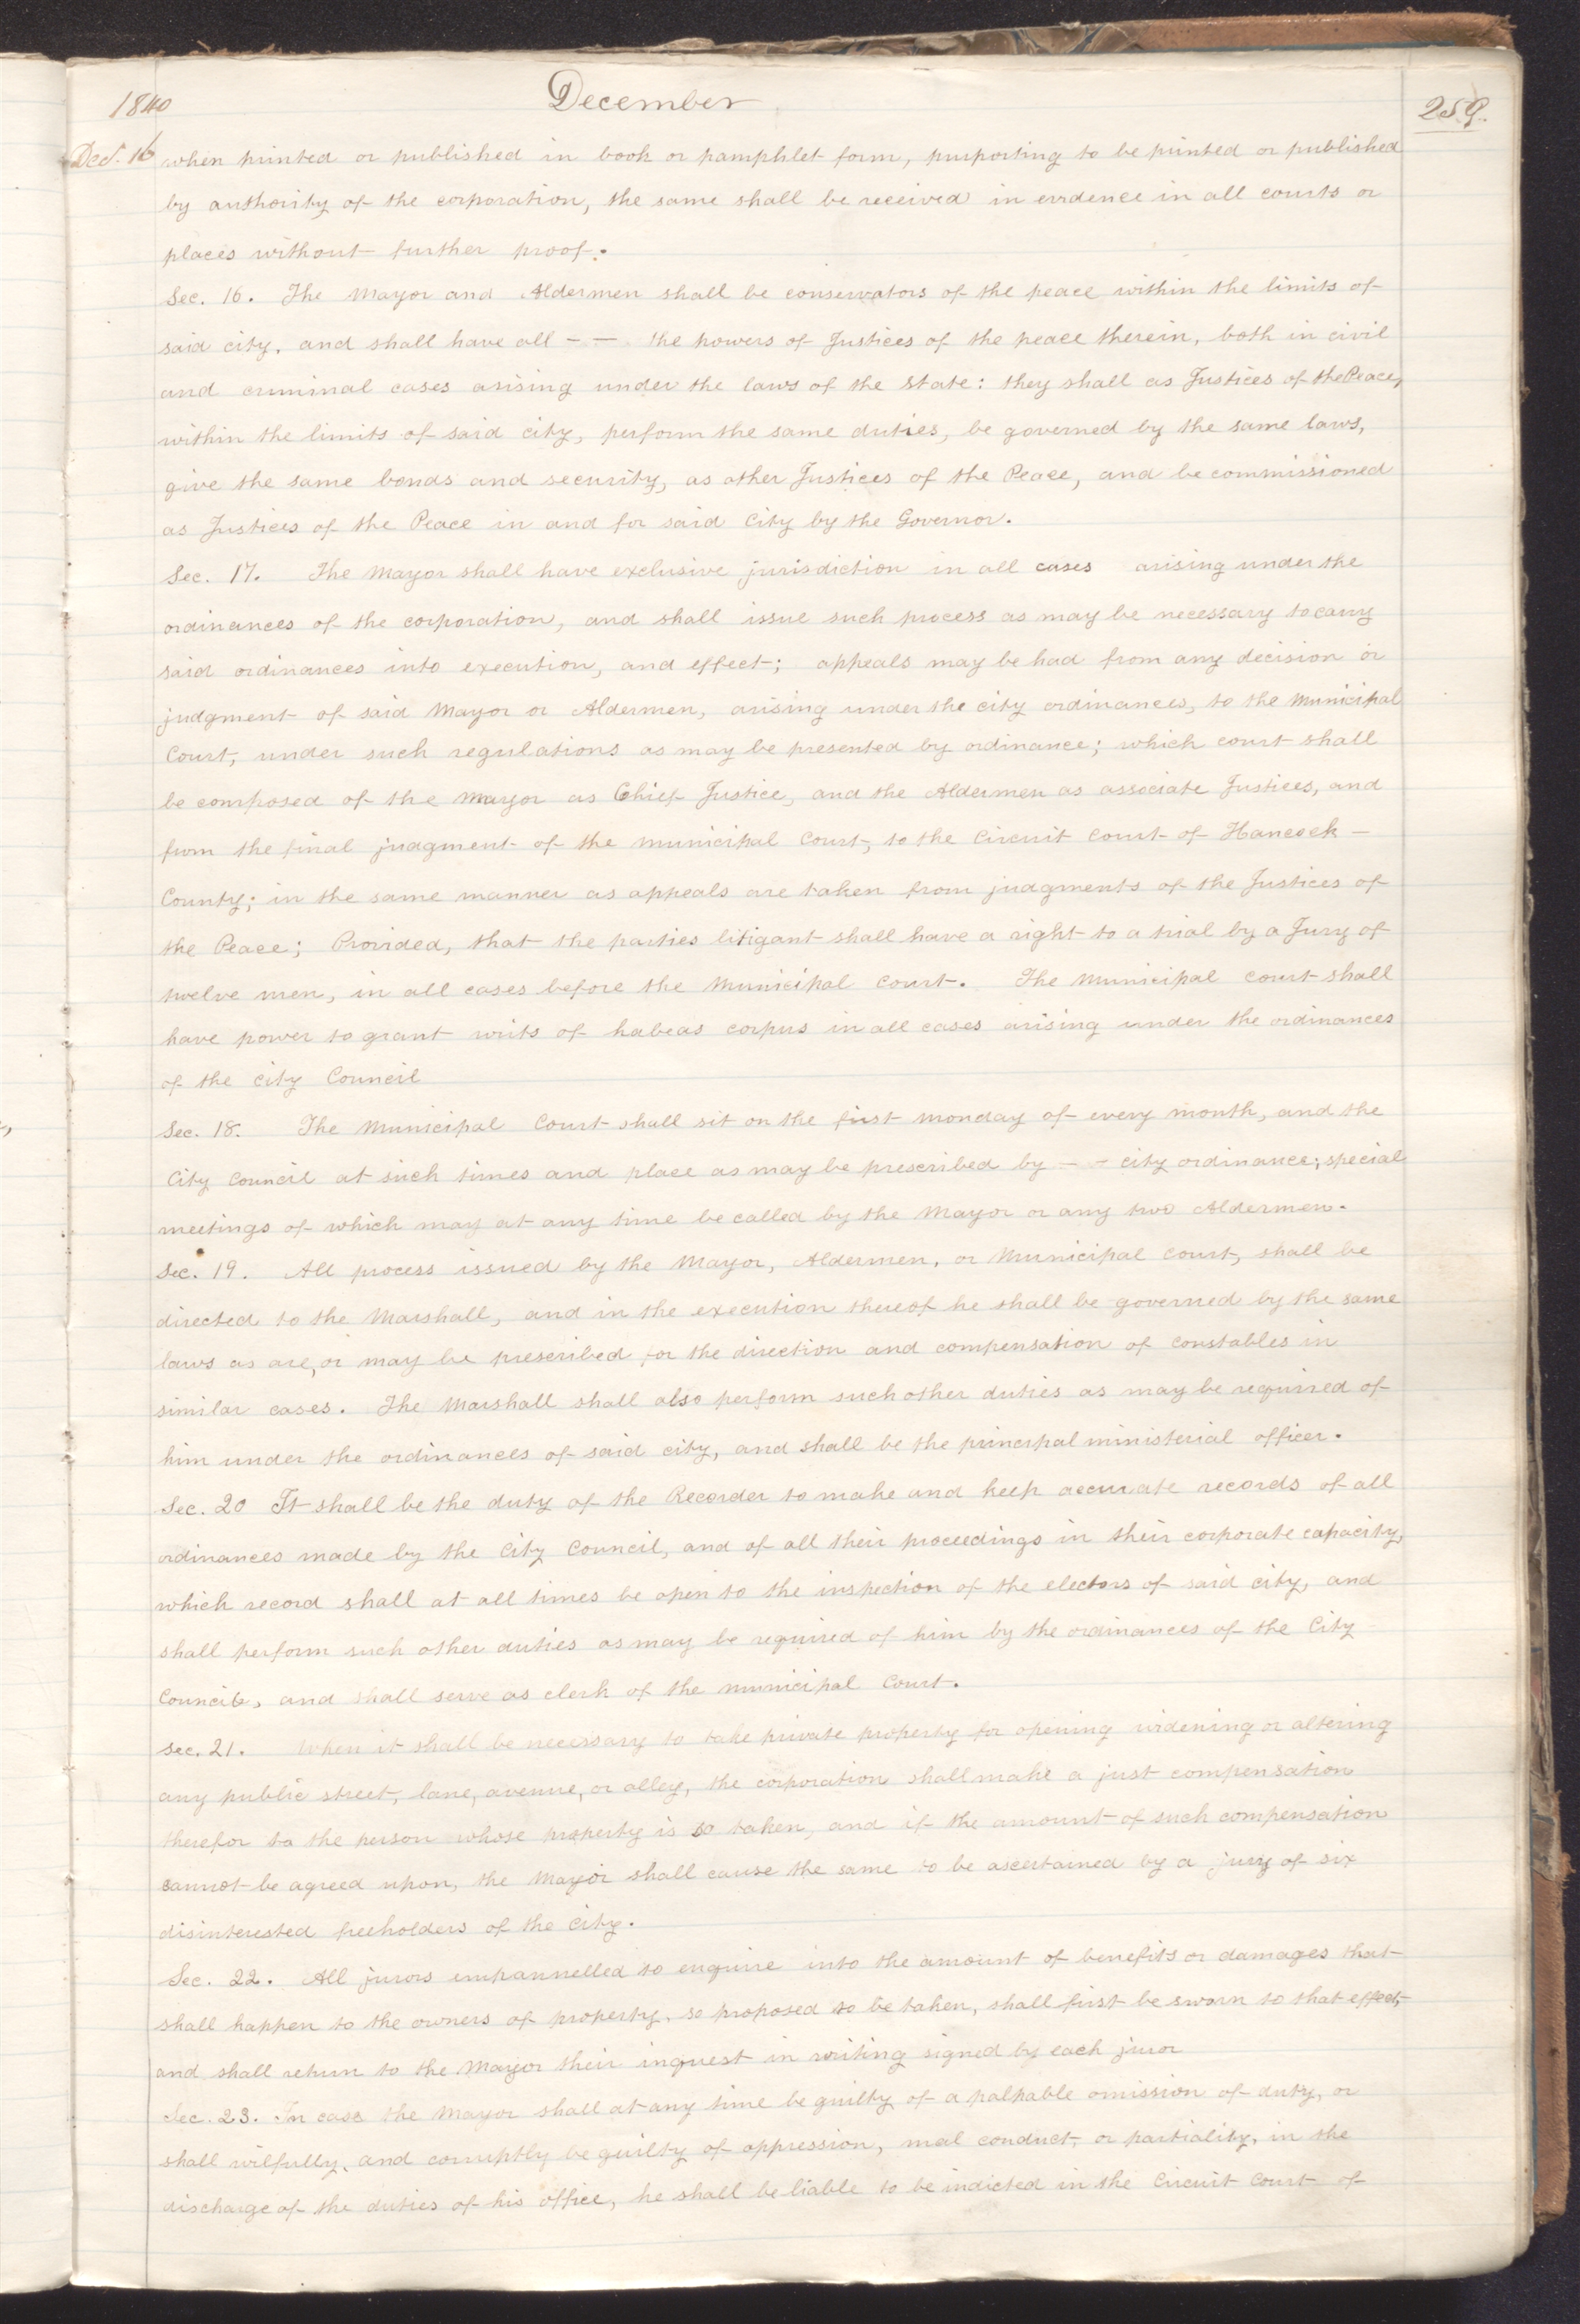 1840
December
259.
Dec. 16
when printed or published in book or pamphlet form, purporting to be printed or published
by authority of the corporation, the same shall be received in evidence in all courts or
places without further proof.
Sec. 16. The Mayor and Aldermen shall be conservators of the peace within the limits of
said city, and shall have all - - the powers of Justices of the peace therein, both in civil
and criminal cases arising under the laws of the State: they shall as Justices of the Peace,
within the limits of said city, perform the same duties, be governed by the same laws,
give the same bonds and security, as other Justices of the Peace, and be commissioned
as Justices of the Peace in and for said City by the Governor.
Sec. 17. The Mayor shall have exclusive jurisdiction in all cases arising under the
ordinances of the corporation, and shall issue such process as may be necessary to carry
said ordinances into execution, and effect; appeals may be had from any decision or
judgment of said Mayor or Aldermen, arising under the city ordinances, to the Municipal
Court, under such regulations as may be presented by ordinance; which court shall
be composed of the Mayor as Chief Justice, and the Aldermen as associate Justices, and
from the final judgment of the Municipal Court, to the Circuit Court of Hancock -
County; in the same manner as appeals are taken from judgments of the Justices of
the Peace; Provided, that the parties litigant shall have a right to a trial by a Jury of
twelve men, in all cases before the Municipal Court. The Municipal Court shall
have power to grant writs of habeas corpus in all cases arising under the ordinances
of the City Council
Sec. 18. The Municipal Court shall sit on the first Monday of every month, and the
City Council at such times and place as may be prescribed by - - city ordinance; special
meetings of which may at any time be called by the Mayor or any two Aldermen.
Sec. 19. All process issued by the Mayor, Aldermen, or Municipal Court, shall be
directed to the Marshall, and in the execution thereof he shall be governed by the same
laws as are, or may be prescribed for the direction and compensation of constables in
similar cases. The Marshall shall also perform such other duties as may be required of
him under the ordinances of said city, and shall be the principal ministerial officer.
Sec. 20 It shall be the duty of the Recorder to make and keep accurate records of all
ordinances made by the City Council, and of all their proceedings in their corporate capacity,
which record shall at all times be open to the inspection of the electors of said city, and
shall perform such other duties as may be required of him by the ordinances of the City
Council, and shall serve as clerk of the Municipal Court.
Sec. 21. When it shall be necessary to take private property for opening widening or altering
any public street, lane, avenue, or alley, the corporation shall make a just compensation
therefor to the person whose property is so taken, and if the amount of such compensation
cannot be agreed upon, the Mayor shall cause the same to be ascertained by a jury of six
disinterested freeholders of the City.
Sec. 22. All jurors empannelled to enquire into the amount of benefits or damages that
shall happen to the owners of property, so proposed to be taken, shall first be sworn to that effect,
and shall return to the Mayor their inquest in writing signed by each juror
Sec. 23. In case the Mayor shall at any time be guilty of a palpable omission of duty, or
shall wilfully, and corruptly be guilty of oppression, mal conduct, or partiality, in the
discharge of the duties of his office, he shall be liable to be indicted in the Circuit Court of